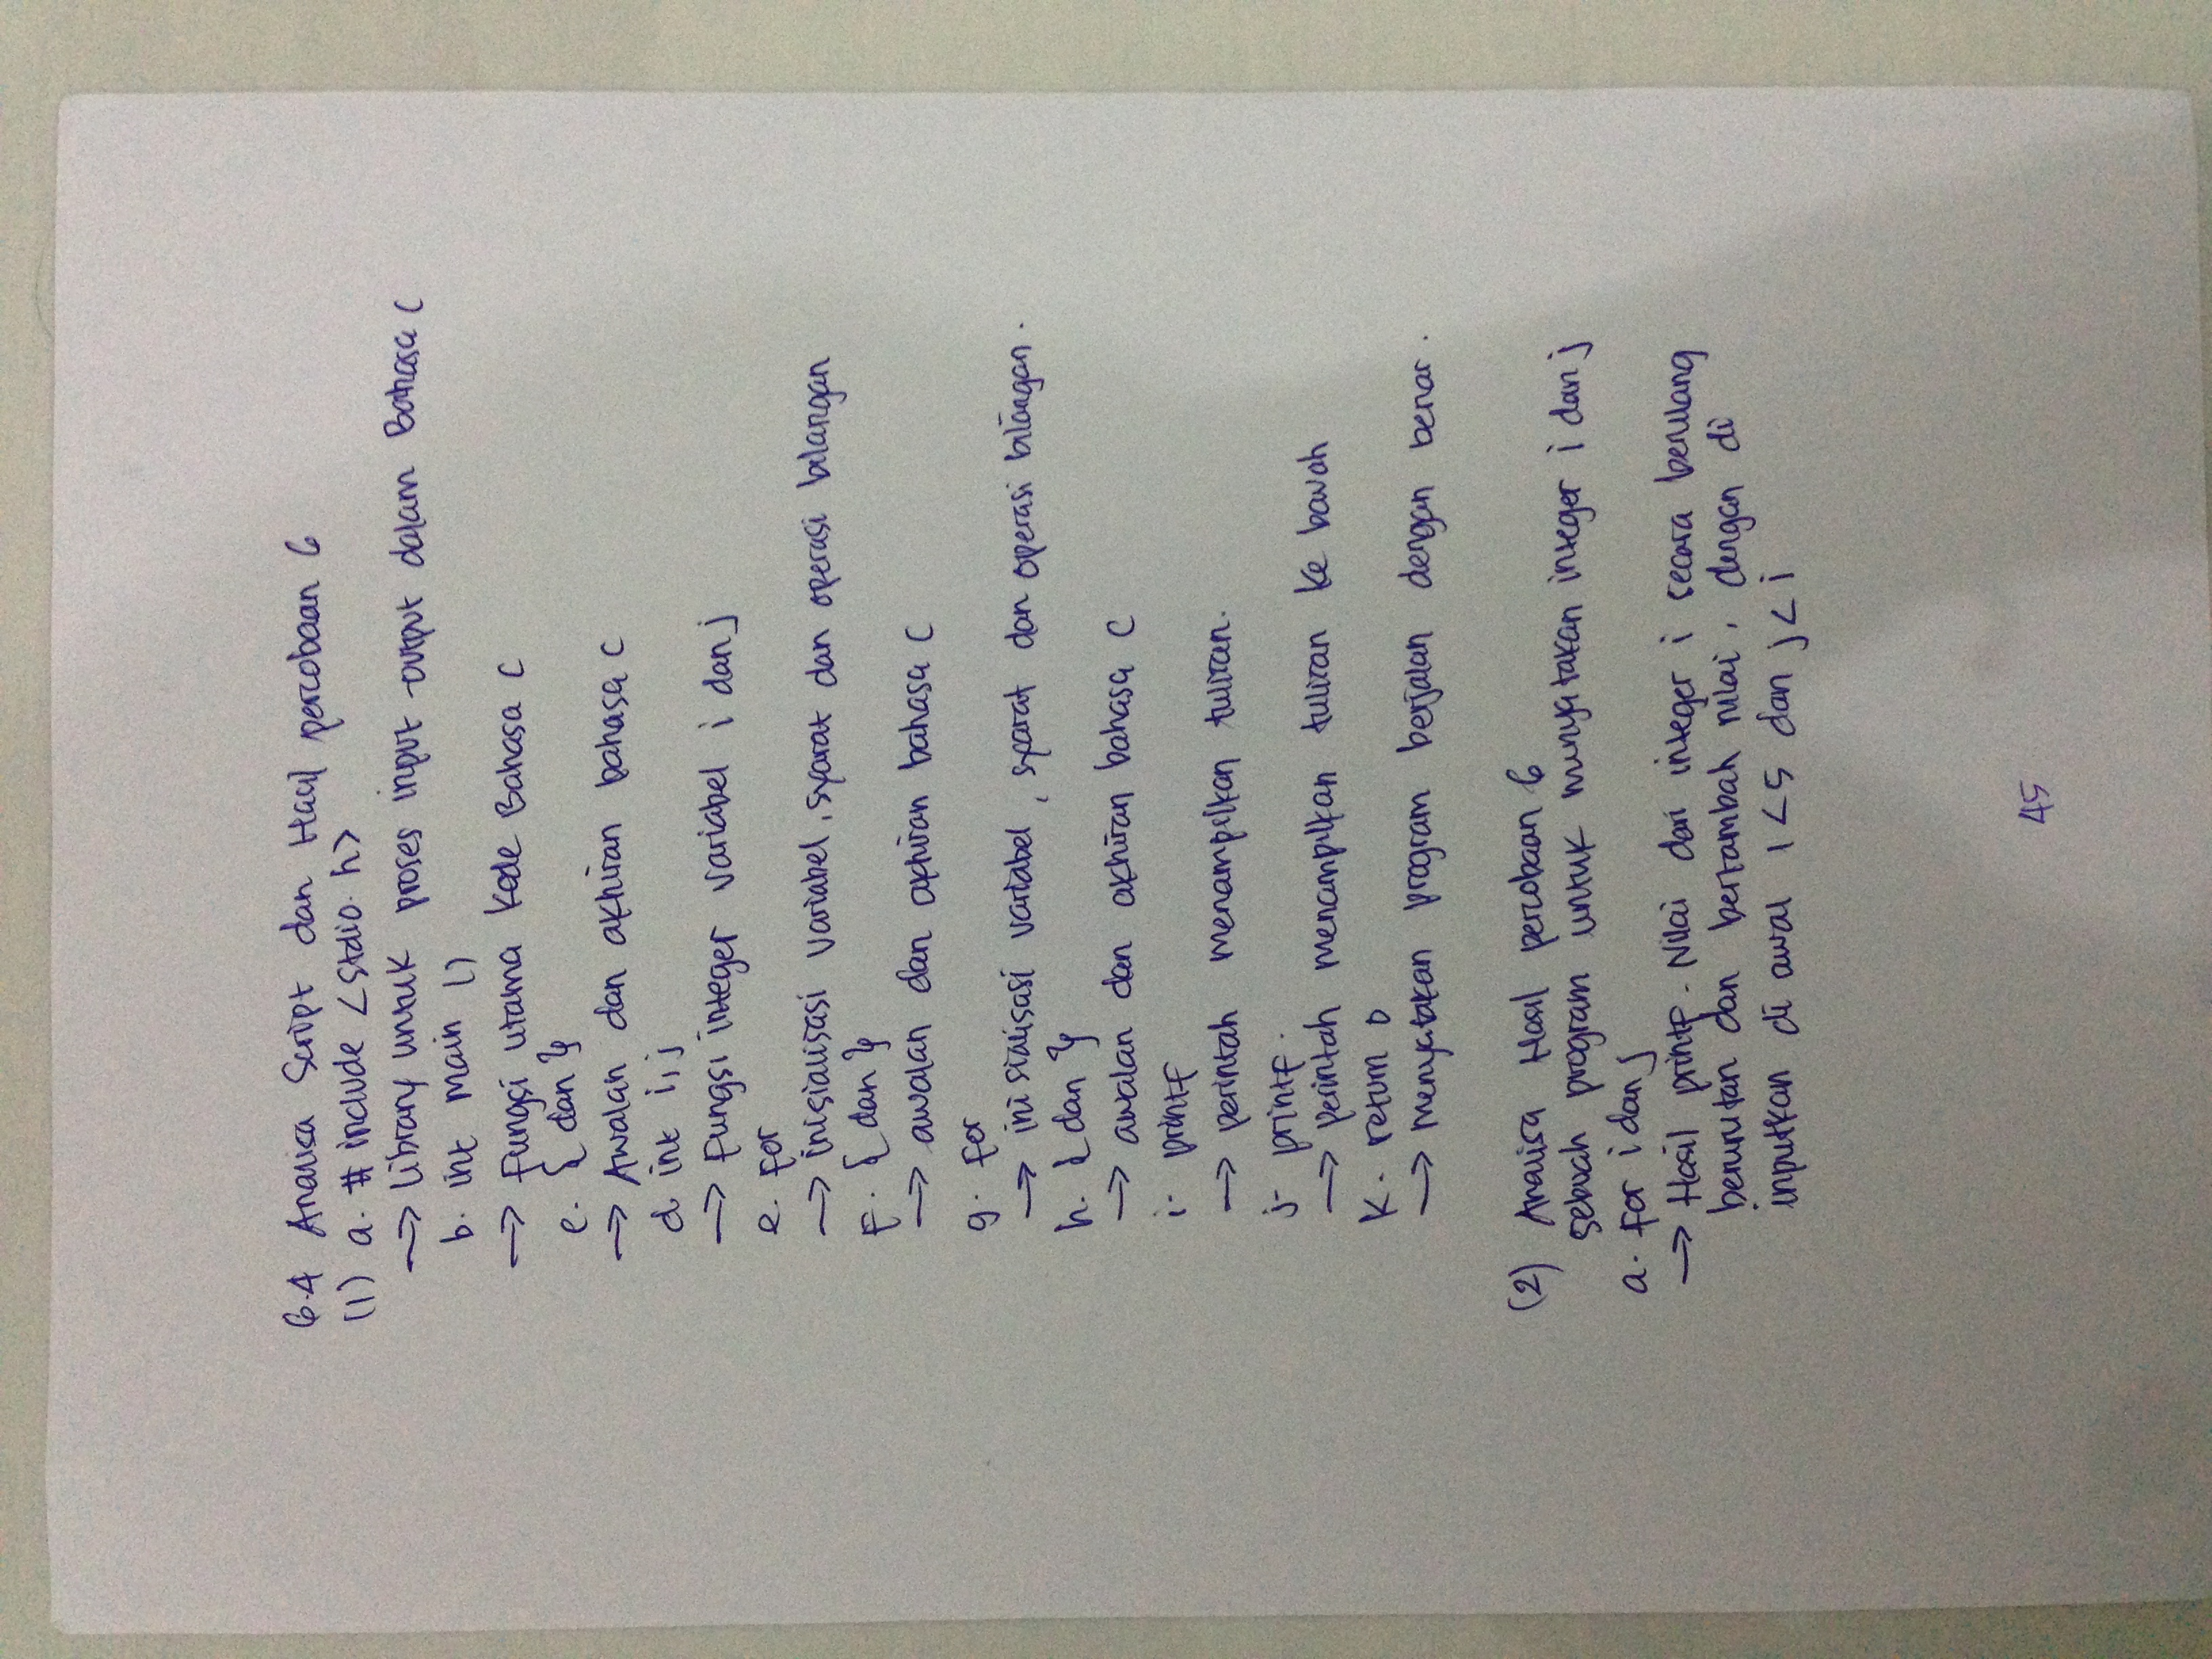 6.4 Analisa Script dan Hasil percobaan 6
(1) a. # include <stdio.h>
→ library untuk proses input-output dalam Bahasa C
b. int main ()
→ Fungsi utama kode Bahasa C
c. { dan }
→ Awalan dan akhiran bahasa C
d. int i, j
→ Fungsi integer variabel i dan j
e. for
→ inisialisasi variabel, syarat dan operasi bilangan
F. { dan }
→ awalan dan akhiran bahasa C
g. for
→ inisialisasi variabel, syarat dan operasi bilangan.
h. { dan }
→ awalan dan akhiran bahasa C
i- printf
→ perintah menampilkan tulisan.
j- printf.
→ perintah menampilkan tulisan ke bawah
K. return 0
→ menyatakan program berjalan dengan benar.
(2) Analisa Hasil percobaan 6
sebuah program untuk menyatakan integer i dan j
a. for i dan j
→ Hasil printf. Nilai dari integer i secara berulang
berurutan dan bertambah nilai, dengan di
inputkan di awal i < 5 dan j < i
45